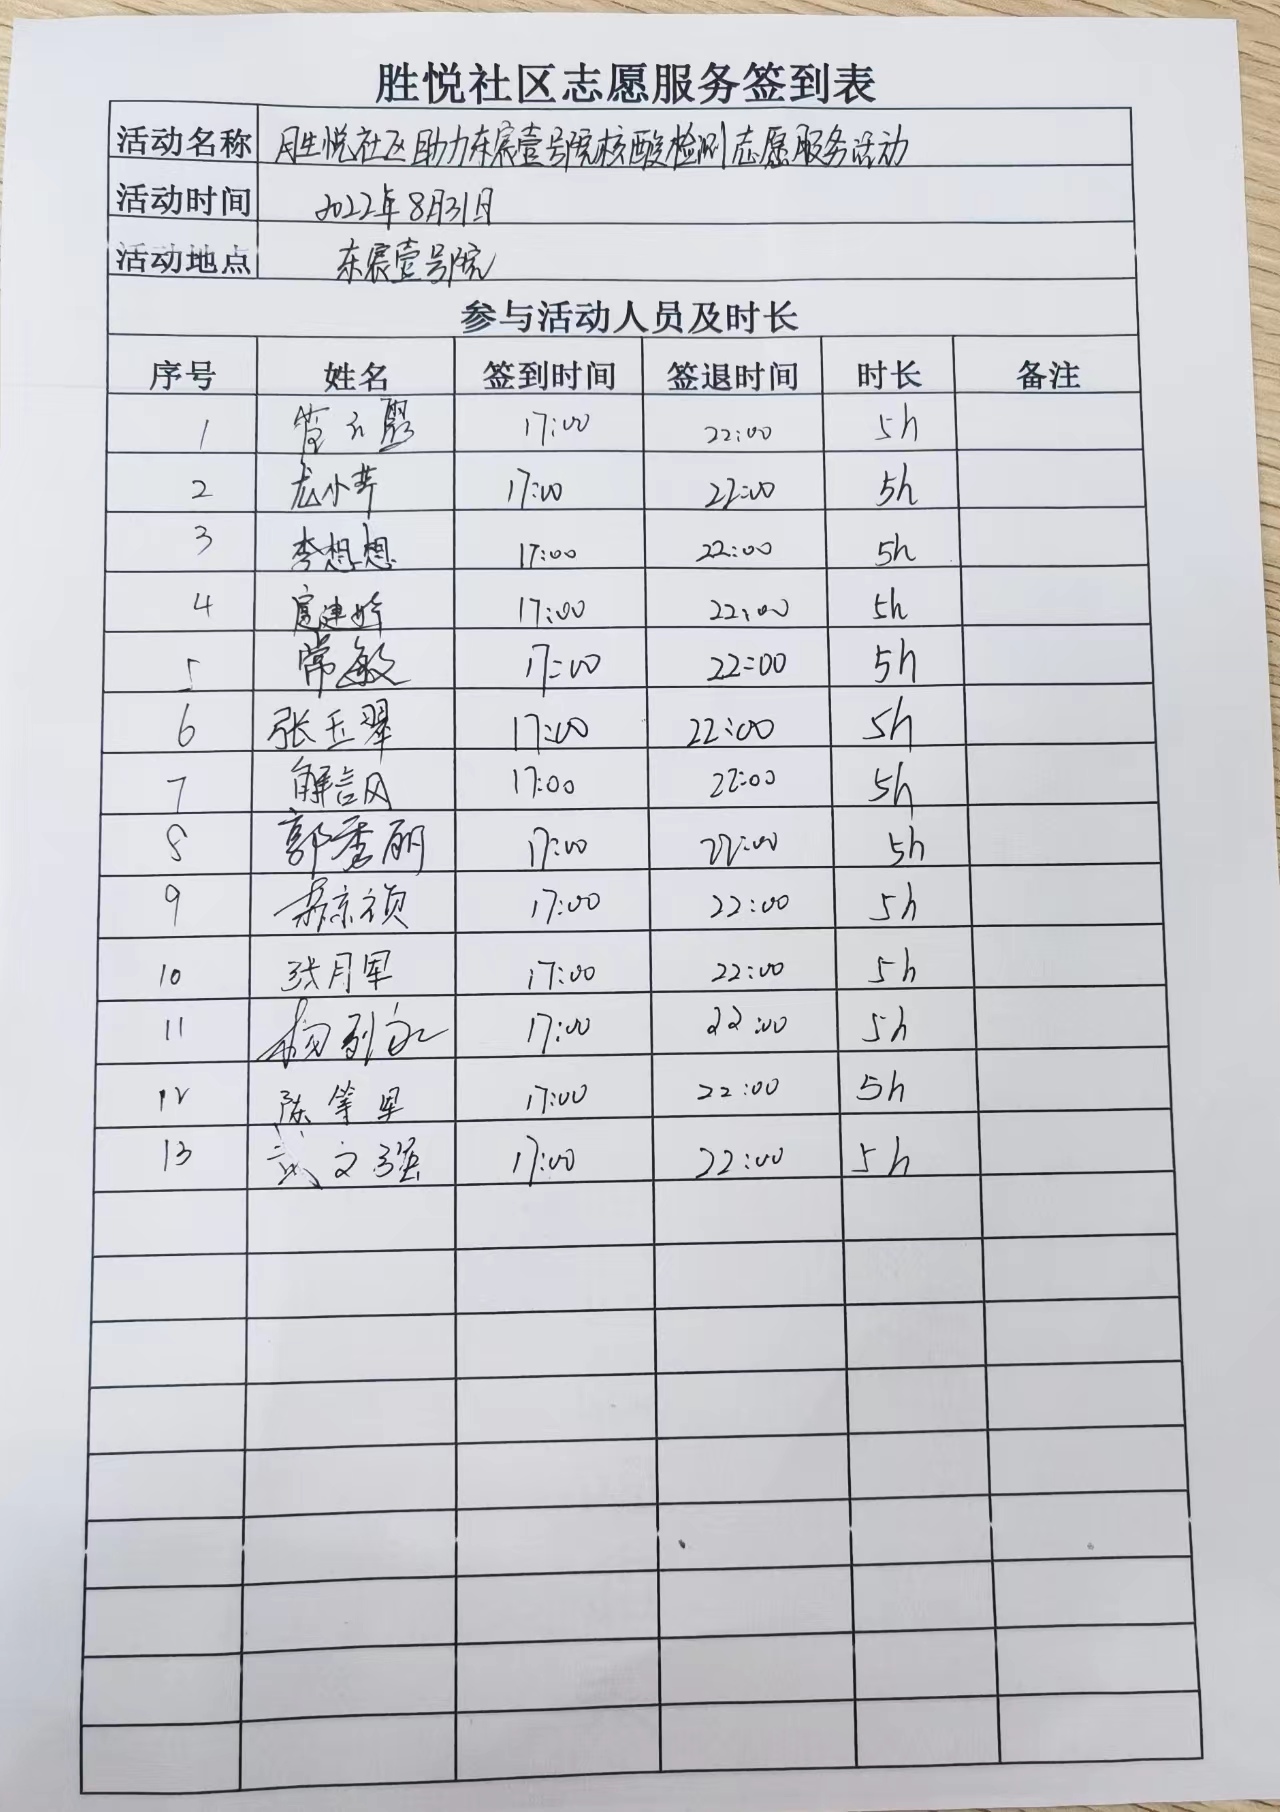 胜悦社区志愿服务签到表
活动名称 胜悦社区助力东宸壹号院核酸检测志愿服务活动
活动时间 2022年8月31日
活动地点 东宸壹号院
参与活动人员及时长
序号 姓名 签到时间 签退时间 时长 备注
1 17:00 22:00 5h
2 龙小芹 17:00 22:00 5h
3 李想想 17:00 22:00 5h
4 17:00 22:00 5h
5 常敏 17:00 22:00 5h
6 张玉翠 17:00 22:00 5h
7 解言风 17:00 22:00 5h
8 郭秀丽 17:00 22:00 5h
9 17:00 22:00 5h
10 张月军 17:00 22:00 5h
11 17:00 22:00 5h
12 陈等军 17:00 22:00 5h
13 武文强 17:00 22:00 5h